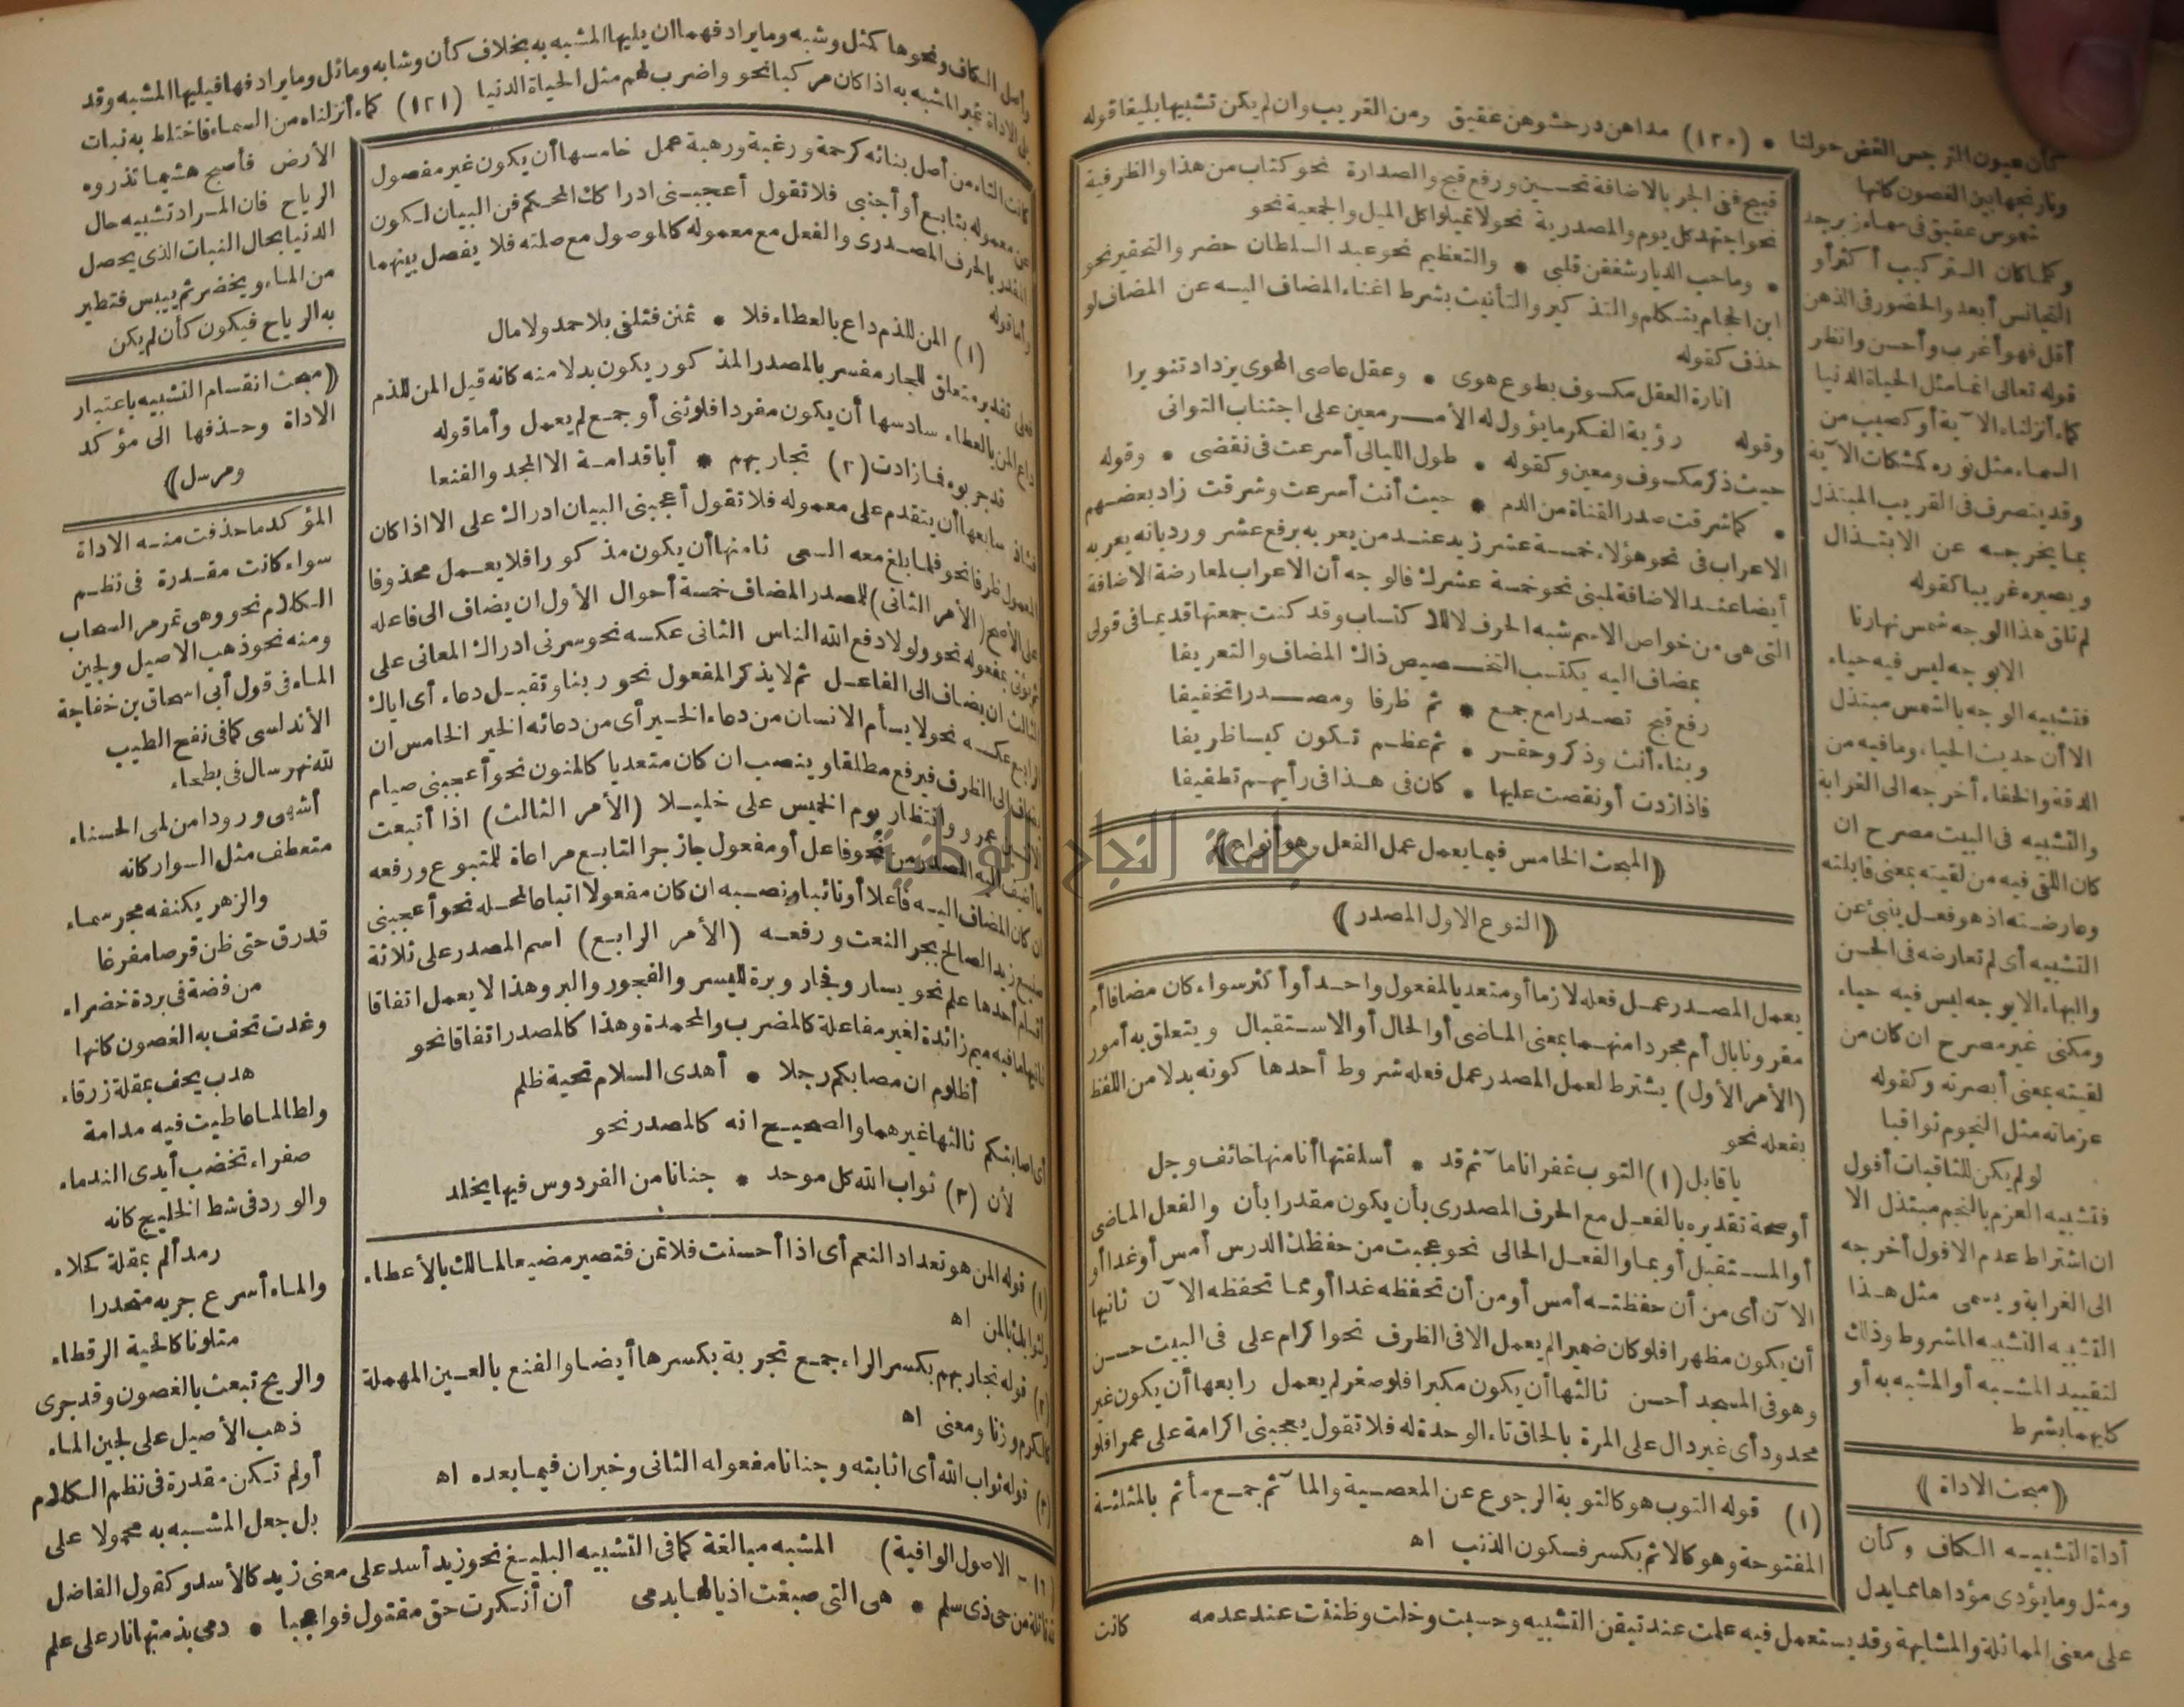 كأن عيون النرجس الغض حولنا * (١٢٠) مداهن در حشوهن عقيق ومن القريب وان لم يكن تشبيها بليغا قوله
ونارنجها بين الغصون كأنها
شموس عقيق في سماء زبرجد
وكلما كان التركيب أكثر أو
التجانس أبعد والحضور في الذهن
أقل فهو أغرب وأحسن وانظر
قوله تعالى انما مثل الحياة الدنيا
كماء أنزلناه الآية أو كصيب من
السماء مثل نوره كمشكات الآية
وقد يتصرف في القريب المبتذل
بما يخرجه عن الابتذال
ويصيره غريبا كقوله
لم تلق هذا الوجه شمس نهارنا
الا بوجه ليس فيه حياء
فتشبيه الوجه بالشمس مبتذل
الا أن حديث الحياء وما فيه من
الدقة والخفاء أخرجه الى الغرابة
والتشبيه في البيت مصرح ان
كان اللقى فيه من لقيته بمعنى قابلته
وعارضته اذ هو فعل ينبئ عن
التشبيه أى لم تعارضه في الحسن
والبهاء الا بوجه ليس فيه حياء
ومكنى غير مصرح ان كان من
لقيته بمعنى أبصرته وكقوله
عزماته مثل النجوم ثواقبا
لو لم يكن للثاقبات أفول
فتشبيه العزم بالنجم مبتذل الا
ان اشتراط عدم الافول أخرجه
الى الغرابة ويسمى مثل هذا
التشبيه التشبيه المشروط وذلك
لتقييد المشبه أو المشبه به أو
كليهما بشرط
(مبحث الاداة)
أداة التشبيه الكاف وكأن
ومثل وما يؤدى مؤداها مما يدل
على معنى المماثلة والمشابهة وقد يستعمل فيه علمت عند تيقن التشبيه وحسبت وخلت وظننت عند عدمه كانت
قبيح ففي الجر بالاضافة تحسين ورفع قبح والصدارة نحو كتاب من هذا والظرفية
نحو اجتهد كل يوم والمصدرية نحو لا تميلوا كل الميل والجمعية نحو
* وما حب الديار شغفن قلبى * والتعظيم نحو عبد السلطان حضر والتحقير نحو
ابن الحجام يتكلم والتذكير والتأنيث بشرط اغناء المضاف اليه عن المضاف لو
حذف كقوله
انارة العقل مكسوف بطوع هوى * وعقل عاصى الهوى يزداد تنويرا
وقوله رؤية الفكر ما يؤول له الأمر معين على اجتناب التوانى
حيث ذكر مكسوف ومعين وكقوله * طول الليالى أسرعت في نقضى * وقوله
* كما شرقت صدر القناة من الدم * حيث أنث أسرعت وشرقت زاد بعضهم
الاعراب في نحو هؤلاء خمسة عشر زيد عند من يعربه برفع عشر ورد بانه يعربه
أيضا عند الاضافة لمبنى نحو خمسة عشرك فالوجه أن الاعراب لمعارضة الاضافة
التى هى من خواص الاسم شبه الحرف لا للاكتساب وقد كنت جمعتها قديما في قولى
بمضاف اليه يكتسب التخصيص ذاك المضاف والتعريفا
رفع قبح تصدرا مع جمع * ثم ظرفا ومصدرا تخفيفا
وبناء أنث وذكر وحقر * ثم عظم تكون كيسا ظريفا
فاذا زدت أو نقصت عليها * كان في هذا في رأيهم تطفيفا
(المبحث الخامس فيما يعمل عمل الفعل وهو أنواع)
(النوع الاول المصدر)
يعمل المصدر عمل فعله لازما أو متعديا لمفعول واحد أو أكثر سواء كان مضافا أم
مقرونا بال أم مجردا منهما بمعنى الماضى أو الحال أو الاستقبال ويتعلق به أمور
(الأمر الأول) يشترط لعمل المصدر عمل فعله شروط أحدها كونه بدلا من اللفظ
بفعله نحو
يا قابل (١) التوب غفرانا مآثم قد * أسلفتها أنا منها خائف وجل
أو صحة تقديره بالفعل مع الحرف المصدرى بأن يكون مقدرا بأن والفعل الماضى
أو المستقبل أو بما والفعل الحالى نحو عجبت من حفظك الدرس أمس أو غدا أو
الآن أى من أن حفظته أمس أو من أن تحفظه غدا أو مما تحفظه الآن ثانيها
أن يكون مظهرا فلو كان ضميرا لم يعمل الا في الظرف نحو اكرام على في البيت حسن
وهو في المسجد أحسن ثالثها أن يكون مكبرا فلو صغر لم يعمل رابعها أن يكون غير
محدود أى غير دال على المرة بالحاق تاء الوحدة له فلا تقول يعجبنى اكرامة على عمرا فلو
(١) قوله التوب هو كالتوبة الرجوع عن المعصية والمآثم جمع مأثم بالمثلثة
المفتوحة وهو كالاثم بكسر فسكون الذنب اه
وأصل الكاف ونحوها كمثل وشبه وما يراد فهما ان يليها المشبه به بخلاف كأن وشابه وماثل وما يراد فها فيليها المشبه وقد
يلى الاداة غير المشبه به اذا كان مركبا نحو واضرب لهم مثل الحياة الدنيا (١٢١) كماء أنزلناه من السماء فاختلط به نبات
الأرض فأصبح هشيما تذروه
الرياح فان المراد تشبيه حال
الدنيا بحال النبات الذى يحصل
من الماء ويخضر ثم ييبس فتطير
به الرياح فيكون كأن لم يكن
(مبحث انقسام التشبيه باعتبار
الاداة وحذفها الى مؤكد
ومرسل)
المؤكد ما حذفت منه الاداة
سواء كانت مقدرة في نظم
الكلام نحو وهى تمر مر السحاب
ومنه نحو ذهب الاصيل ولجين
الماء في قول أبى اسحاق بن خفاجة
الأندلسى كما في نفح الطيب
لله نهر سال في بطحاء
أشهى ورودا من لمى الحسناء
متعطف مثل السوار كأنه
والزهر يكنفه مجر سماء
قد رق حتى ظن قرصا مفرغا
من فضة في بردة خضراء
وغدت تحف به الغصون كأنها
هدب يحف بمقلة زرقاء
ولطالما عاطيت فيه مدامة
صفراء تخضب أيدى الندماء
والورد في شط الخليج كأنه
رمد ألم بمقلة كحلاء
والماء أسرع جريه متحدرا
متلونا كالحية الرقطاء
والريح تبعث بالغصون وقد جرى
ذهب الأصيل على لجين الماء
أو لم تكن مقدرة في نظم الكلام
بل جعل المشبه به محمولا على
كانت التاء من أصل بنائه كرحمة ورغبة ورهبة عمل خامسها أن يكون غير مفصول
عن معموله بتابع أو أجنبى فلا تقول أعجبنى ادراكك المحكم فن البيان لكون
المقدر بالحرف المصدرى والفعل مع معموله كالموصول مع صلته فلا يفصل بينهما
وأما قوله
(١) المن للذم داع بالعطاء فلا * تمنن فتلفى بلا حمد ولا مال
فعلى تقدير متعلق للجار مفسر بالمصدر المذكور يكون بدلا منه كانه قيل المن للذم
داع المن بالعطاء سادسها أن يكون مفردا فلو ثنى أو جمع لم يعمل وأما قوله
قد جربوه فما زادت (٢) تجاربهم * أبا قدامة الا المجد والفنعا
فشاذ سابعها أن يتقدم على معموله فلا تقول أعجبنى البيان ادراك على الا اذا كان
المعمول ظرفا نحو فلما بلغ معه السعى ثامنها أن يكون مذكورا فلا يعمل محذوفا
على الأصح (الأمر الثانى) للمصدر المضاف خمسة أحوال الأول ان يضاف الى فاعله
ثم يؤتى بمفعوله نحو ولولا دفع الله الناس الثانى عكسه نحو سرنى ادراك المعانى على
الثالث ان يضاف الى الفاعل ثم لا يذكر المفعول نحو ربنا وتقبل دعاء أى اياك
الرابع عكسه نحو لا يسأم الانسان من دعاء الخير أى من دعائه الخير الخامس ان
يضاف الى الظرف فيرفع مطلقا وينصب ان كان متعديا كالمنون نحو أعجبنى صيام
عمرو وانتظار يوم الخميس على خليلا (الأمر الثالث) اذا أتبعت
ما أضيف اليه المصدر من نحو فاعل أو مفعول جاز جر التابع مراعاة للمتبوع ورفعه
ان كان المضاف اليه فاعلا أو نائبا ونصبه ان كان مفعولا اتباعا لمحله نحو أعجبنى
صنيع زيد الصالح بجر النعت ورفعه (الأمر الرابع) اسم المصدر على ثلاثة
أقسام أحدها علم نحو يسار وفجار وبرة لليسر والفجور والبر وهذا لا يعمل اتفاقا
ثانيها ما فيه ميم زائدة لغير مفاعلة كالمضرب والمحمدة وهذا كالمصدر اتفاقا نحو
أظلوم ان مصابكم رجلا * أهدى السلام تحية ظلم
أى اصابتكم ثالثها غيرهما والصحيح انه كالمصدر نحو
لأن (٣) ثواب الله كل موحد * جنانا من الفردوس فيها يخلد
(١) قوله المن هو تعداد النعم أى اذا أحسنت فلا تمن فتصير مضيعا لمالك بالأعطاء
ولثوابك بالمن اه
(٢) قوله تجاربهم بكسر الراء جمع تجربة بكسرها أيضا والفنع بالعين المهملة
كالكرم وزنا ومعنى اه
(٣) قوله ثواب الله أى اثابته وجنانا مفعوله الثانى وخبر ان فيما بعده اه
(١٦ - الاصول الوافية) المشبه مبالغة كما في التشبيه البليغ نحو زيد أسد على معنى زيد كالأسد وكقول الفاضل
من حى ذى سلم * هى التى صبغت اذيالها بدمى أن أنكرت حق مقتول فواعجبا * دمى بذمتها نار على علم
جامعة النجاح الوطنية